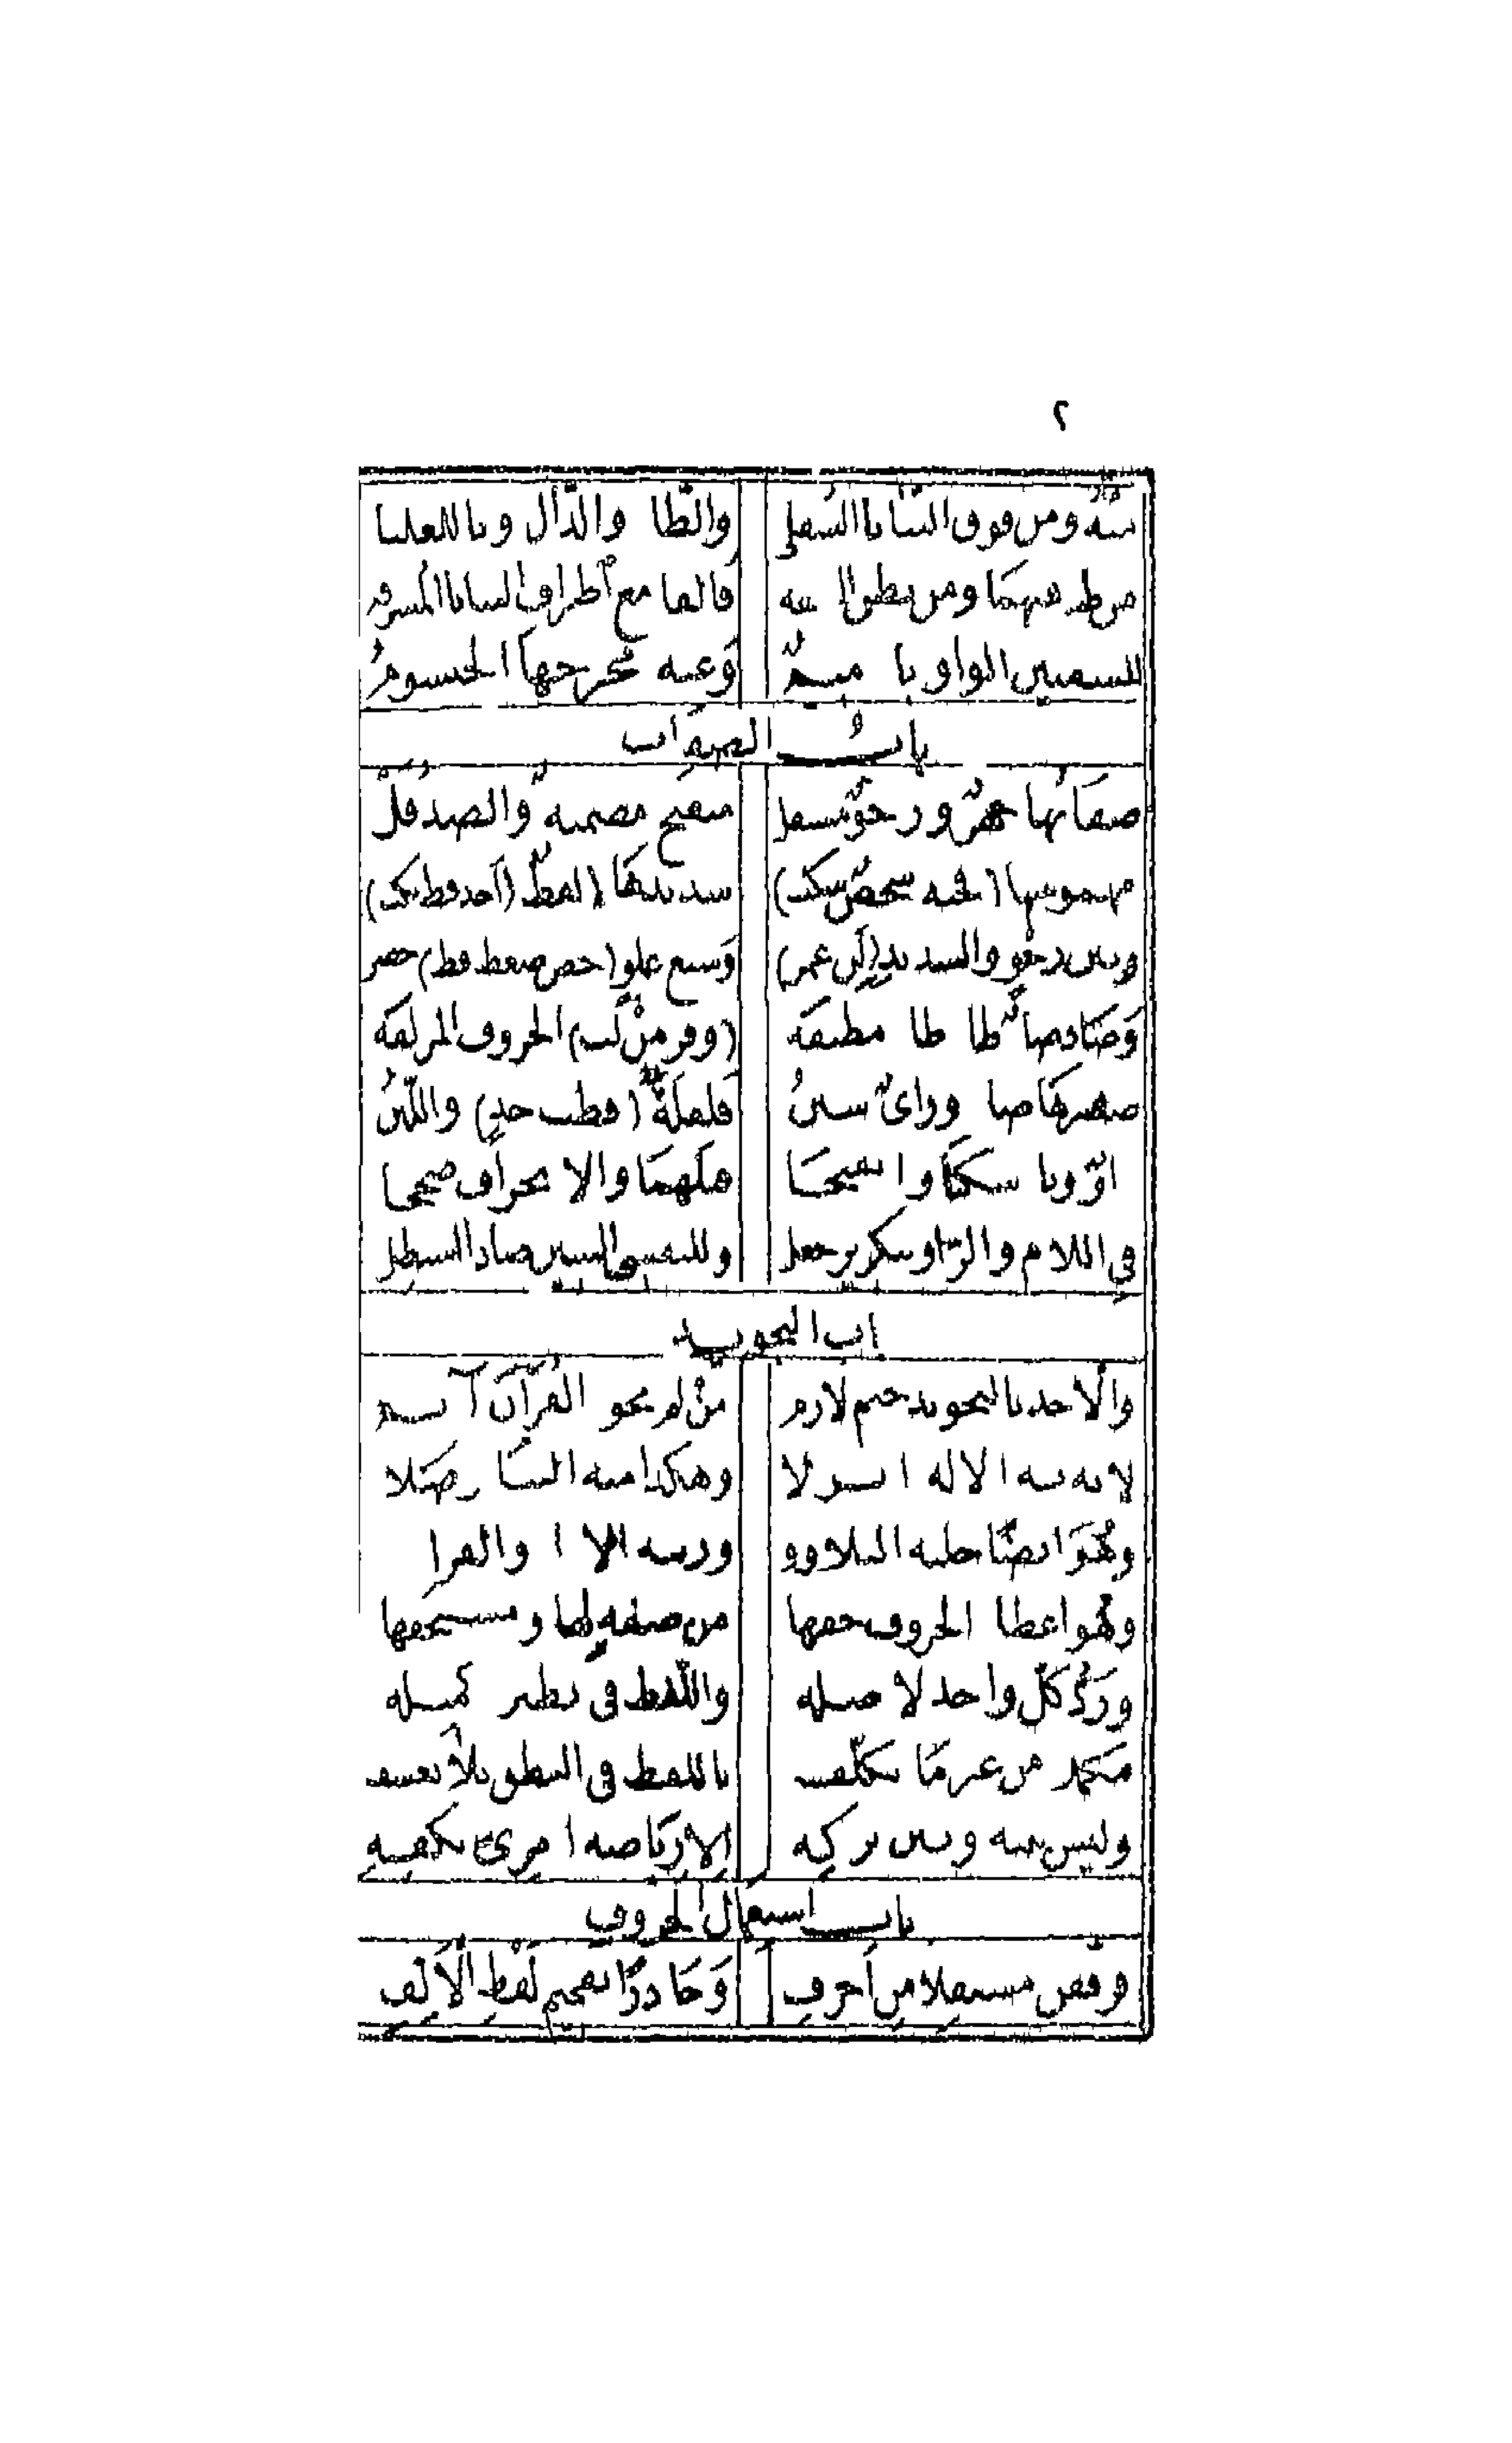 ٢
منه ومن فوق الثنايا السفلى والظا والذال وثا للعليا
من طرفيهما ومن بطن الشفه فالفا مع أطراف الثنايا المشرفه
للشفتين الواو با ميم وغنه مخرجها الخيشوم
باب الصفات
صفاتها جهر ورخو مستفل منفتح مصمتة والضد قل
مهموسها (فحثه شخص سكت) شديدها لفظ (أجد قط بكت)
وبين رخو والشديد (لن عمر) وسبع علو (خص ضغط قظ) حصر
وصاد ضاد طا ظا مطبقه (وفر من لب) الحروف المذلقه
صفيرها صا وزاى سين قلقلة (قطب جد) واللين
واو ويا سكنا وانفتحا قبلهما والانحراف صححا
فى اللام والرا وبتكرير جعل وللتفشى الشين ضادا استطل
باب التجويد
والأخذ بالتجويد حتم لازم من لم يجود القرآن آثم
لأنه به الإله أنزلا وهكذا منه إلينا وصلا
وهو أيضا حلية التلاوة وزينة الأداء والقراءة
وهو إعطاء الحروف حقها من صفة لها ومستحقها
ورد كل واحد لأصله واللفظ فى نظيره كمثله
مكملا من غير ما تكلف باللطف فى النطق بلا تعسف
وليس بينه وبين تركه إلا رياضة امرئ بفكه
باب استعمال الحروف
فرققن مستفلا من أحرف وحاذرن تفخيم لفظ الألف